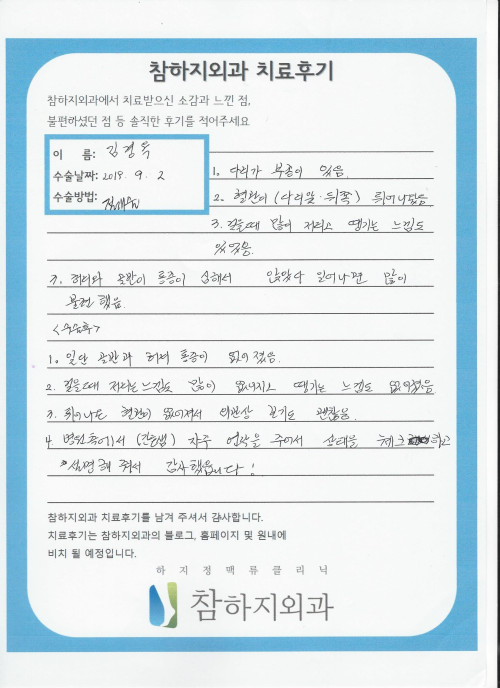 참하지외과 치료후기
참하지외과에서 치료받으신 소감과 느낀 점,
불편하셨던 점 등 솔직한 후기를 적어주세요
이 름: 김경옥
수술날짜: 2019. 9. 2
수술방법:
1. 다리가 부종이 있음.
2. 혈관이 (다리앞·뒤쪽) 튀어나왔음
3. 걸을때 많이 저리고 땡기는 느낌도
있었음.
7. 허리와 골반이 통증이 심해서 앉았다 일어나면 많이
불편했음.
<수술후>
1. 일단 골반과 허리 통증이 없어졌음.
2. 걸을때 저리는 느낌도 많이 없어지고 땡기는 느낌도 없어졌음
3. 튀어나온 혈관이 없어져서 외관상 보기도 괜찮음.
4. 병원측에서 (간호쌤) 자주 연락을 주어서 상태를 체크하고
설명해 줘서 감사했습니다!
참하지외과 치료후기를 남겨 주셔서 감사합니다.
치료후기는 참하지외과의 블로그, 홈페이지 및 원내에
비치 될 예정입니다.
하지정맥류클리닉
참하지외과